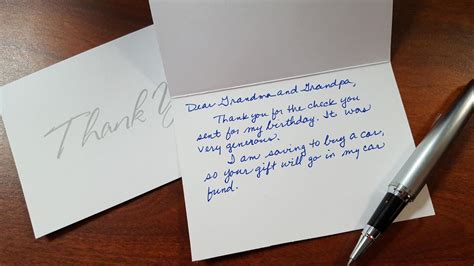 Thank Y
Dear Grandma and Grandpa,
Thank you for the check you
sent for my birthday. It was
very generous.
I am saving to buy a car,
so your gift will go in my car
fund.